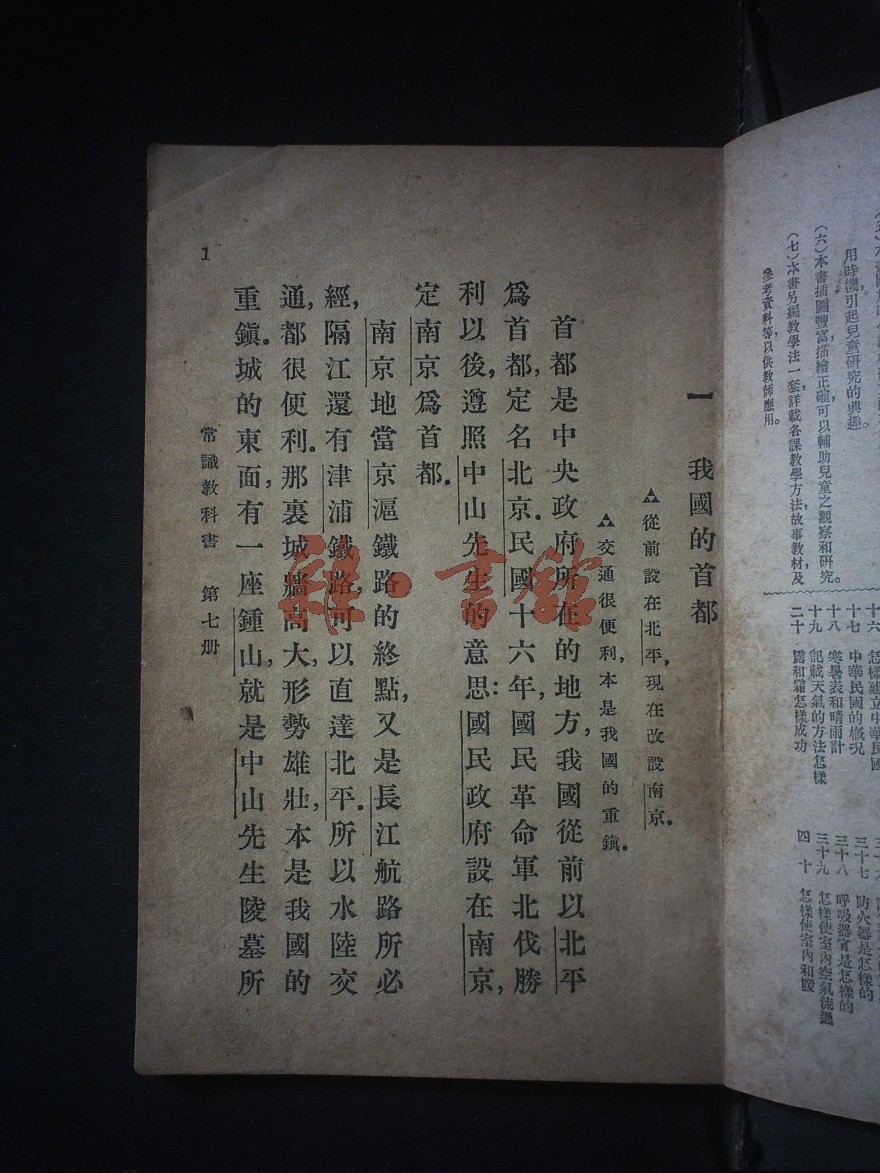 用時機,引起兒童研究的興趣。
(六)本書插圖豐富,描繪正確,可以輔助兒童之觀察和研究。
(七)本書另編教學法一套,詳載各課教學方法,故事教材,及
參考資料等,以供教師應用。
十六
十七 中華民國的概況
十八 寒暑表和晴雨計
十九 記載天氣的方法怎樣
二十 露和霜怎樣成功
三十七 防火器是怎樣的
三十八 呼吸器官是怎樣的
三十九 怎樣使室內空氣流通
四十 怎樣使室內和暖
一 我國的首都
△從前設在北平,現在改設南京。
△交通很便利,本是我國的重鎮。
首都是中央政府所在的地方,我國從前以北平
爲首都,定名北京。民國十六年,國民革命軍北伐勝
利以後,遵照中山先生的意思:國民政府設在南京,
定南京爲首都。
南京地當京滬鐵路的終點,又是長江航路所必
經,隔江還有津浦鐵路,可以直達北平。所以水陸交
通,都很便利。那裏城牆高大,形勢雄壯,本是我國的
重鎮。城的東面,有一座鍾山,就是中山先生陵墓所
常識教科書 第七册
1
雜·書館